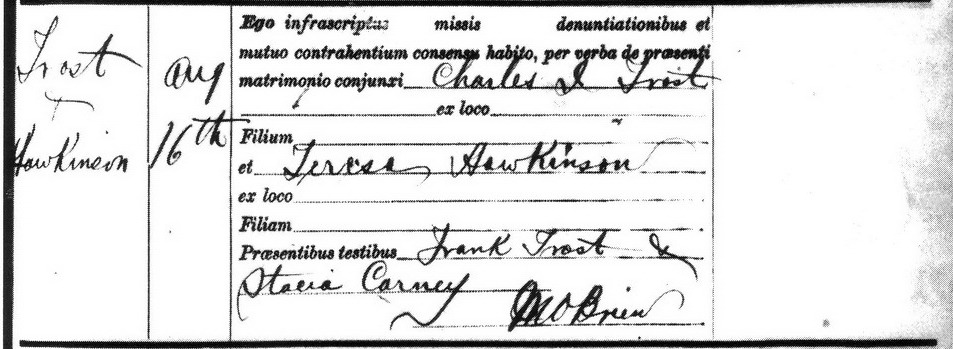 Trost
+
Hawkinson
Aug
16th
Ego infrascriptus missis denuntiationibus et
mutuo contrahentium consensu habito, per verba de præsenti
matrimonio conjunxi Charles I Trost
ex loco
Filium
et Teresa Hawkinson
ex loco
Filiam
Præsentibus testibus Frank Trost &
Stacia Carney
M O Brien